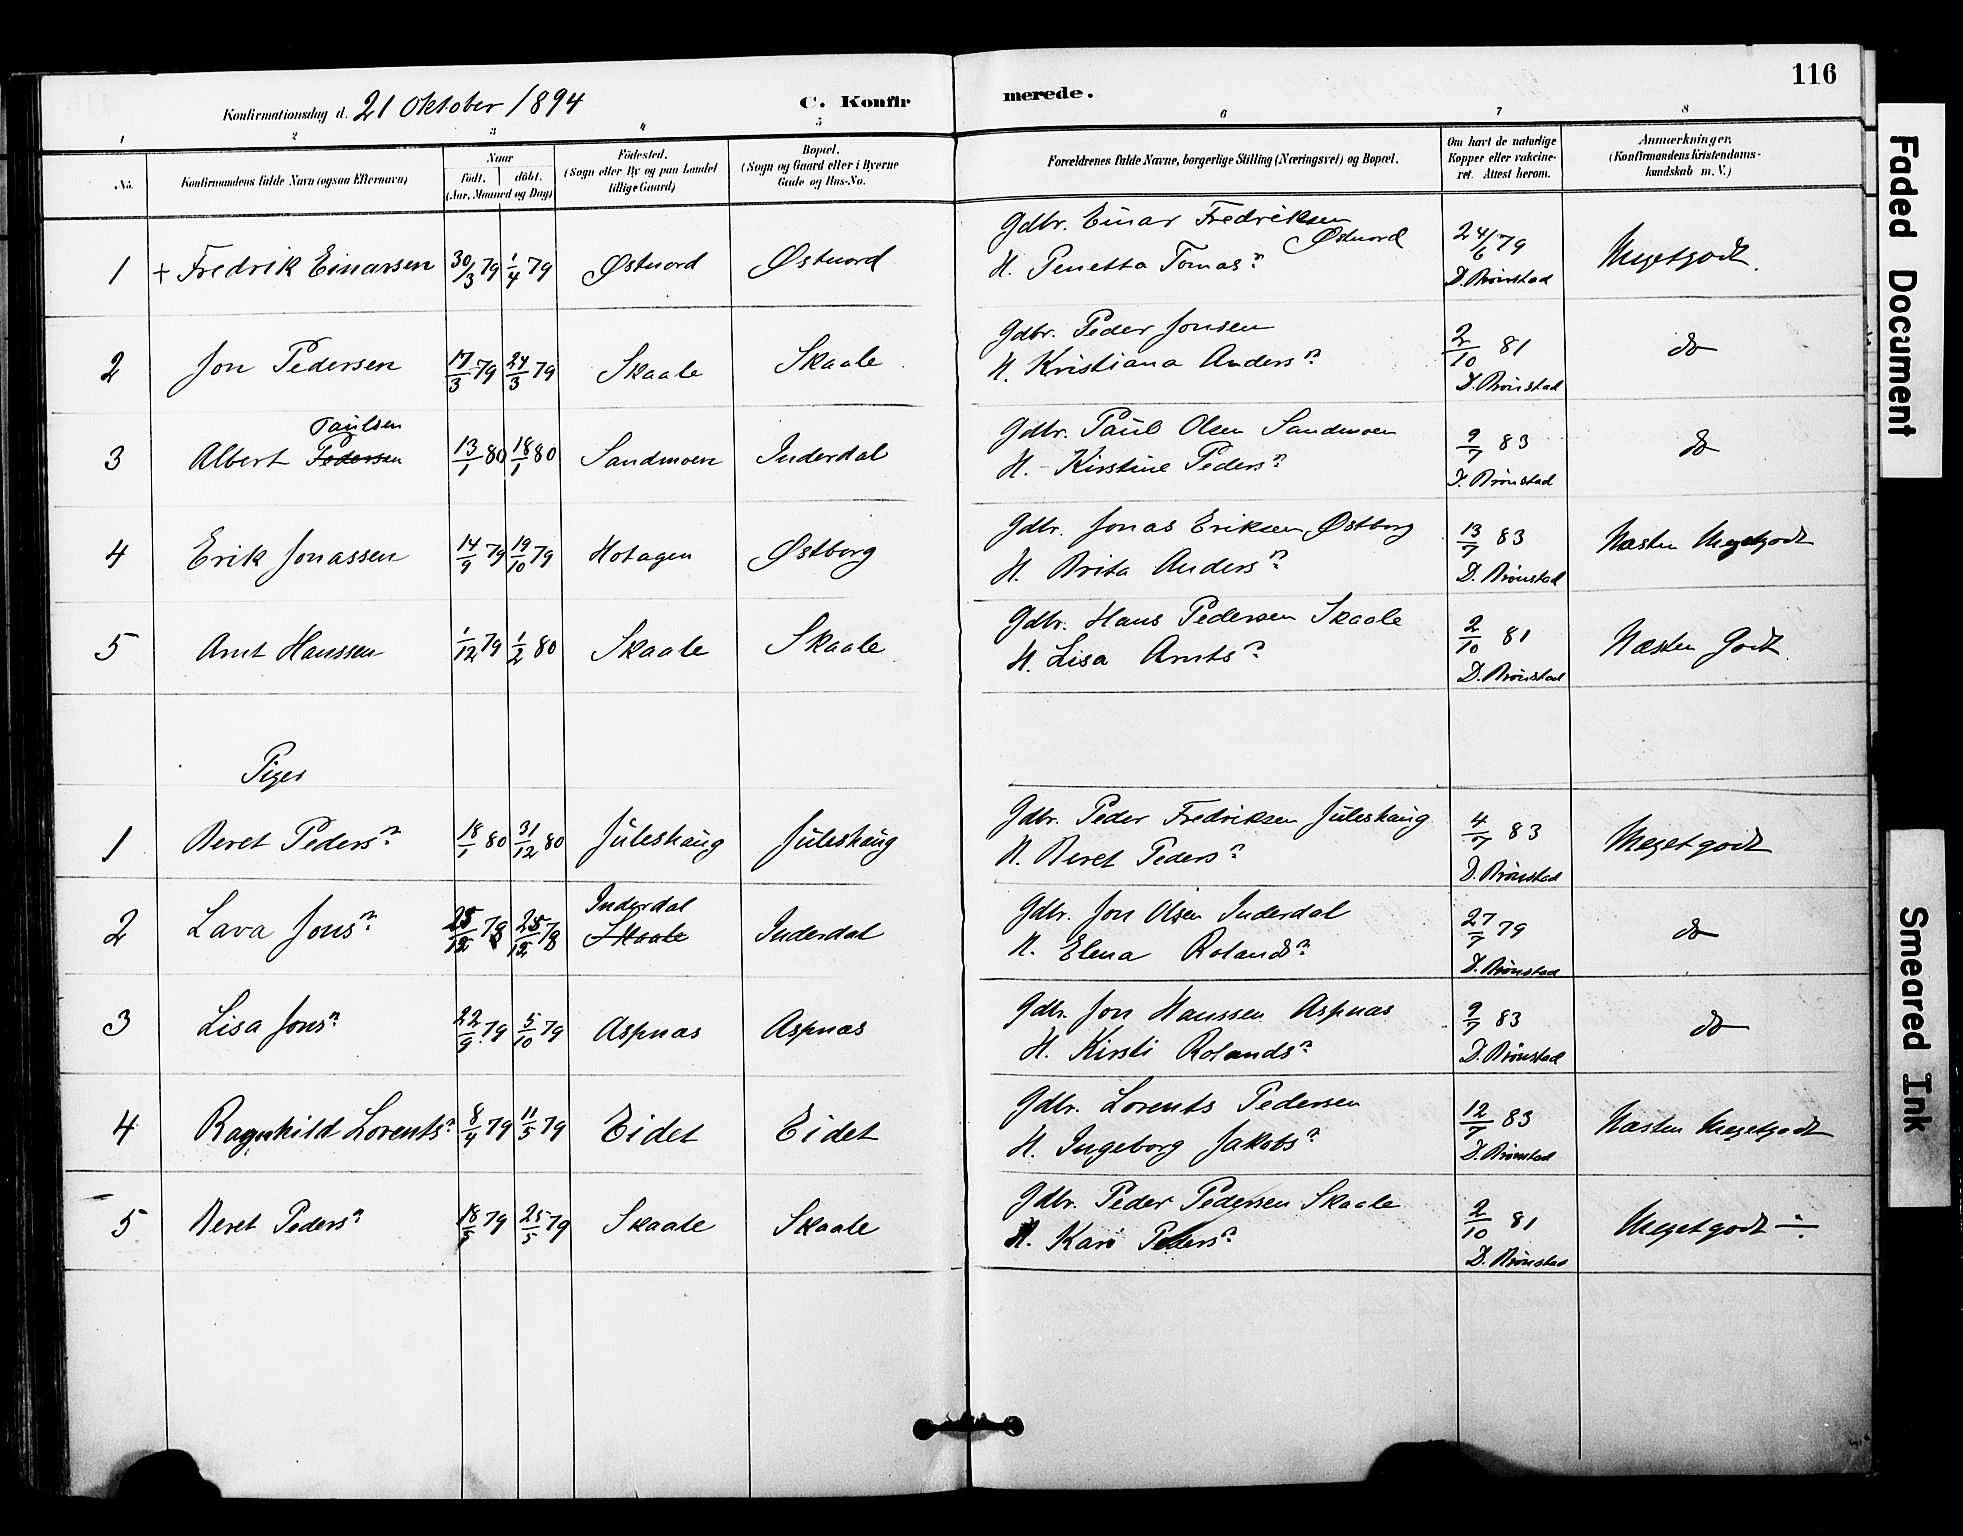 116
Konfirmationsdag d. 21 Oktober 1894
C. Konfirmerede.
1 2 3 4 5 6 7 8
No.
Konfirmandens fulde Navn (ogsaa Efternavn)
Naar
født. døbt.
(Aar, Maaned og Dag)
Fødested.
(Sogn eller By og paa Landet
tillige Gaard)
Bopæl.
(Sogn og Gaard eller i Byerne
Gade og Hus-No.
Forældrenes fulde Navne, borgerlige Stilling (Næringsvei) og Bopæl.
Om havt de naturlige
Kopper eller vakcine-
ret. Attest herom.
Anmærkninger.
(Konfirmandens Kristendoms-
kundskab m. V.)
Gdbr. Einar Fredriksen
1 + Fredrik Einarsen 30/3 79 1/4 79 Østnord Østnord H. Penetta Tomasn Østnord 24/6 79 D. Brönstad Megetgodt.
Gdbr. Peder Jonsen
2 Jon Pedersen 17/3 79 24/3 79 Skaale Skaale H. Kristiana Andersn 2/10 81 D. Brönstad do
Paulsen Gdbr. Paul Olsen Sandmoen
3 Albert Pedersen 13/1 80 18/1 80 Sandmoen Inderdal H. Kirstine Pedersn 9/7 83 D. Brönstad do
Gdbr. Jonas Eriksen Østborg
4 Erik Jonassen 14/9 79 19/10 79 Hotagen Østborg H. Brita Andersn 13/7 83 D. Brönstad Næsten Megetgodt
Gdbr. Hans Pedersen Skaale
5 Arnt Hanssen 1/12 79 1/2 80 Skaale Skaale H. Lisa Arntsn 2/10 81 D. Brönstad Næsten Godt
Piger
Gdbr. Peder Fredriksen Juleshaug
1 Beret Pedersn 18/1 80 31/12 80 Juleshaug Juleshaug H. Beret Pedersn 4/7 83 D. Brönstad Megetgodt
Inderdal Gdbr. Jon Olsen Inderdal
2 Lava Jonsn 25/12 78 25/12 78 Skaale Inderdal H. Elena Rolandsn 27/7 79 D. Brönstad do
Gdbr. Jon Hanssen Aspnas
3 Lisa Jonsn 22/9 79 5/10 79 Aspnas Aspnas H. Kirsti Rolandsn 9/7 83 D. Brönstad do
Gdbr. Lorents Pedersen
4 Ragnhild Lorentsn 8/4 79 11/5 79 Eidet Eidet H. Ingeborg Jakobsn 12/7 83 D. Brönstad Næsten Megetgodt
Gdbr. Peder Pedersen Skaale
5 Beret Pedersn 18/5 79 25/5 79 Skaale Skaale H. Kari Pedersn 2/10 81 D. Brönstad Megetgodt ÷
Faded Document
Smeared Ink